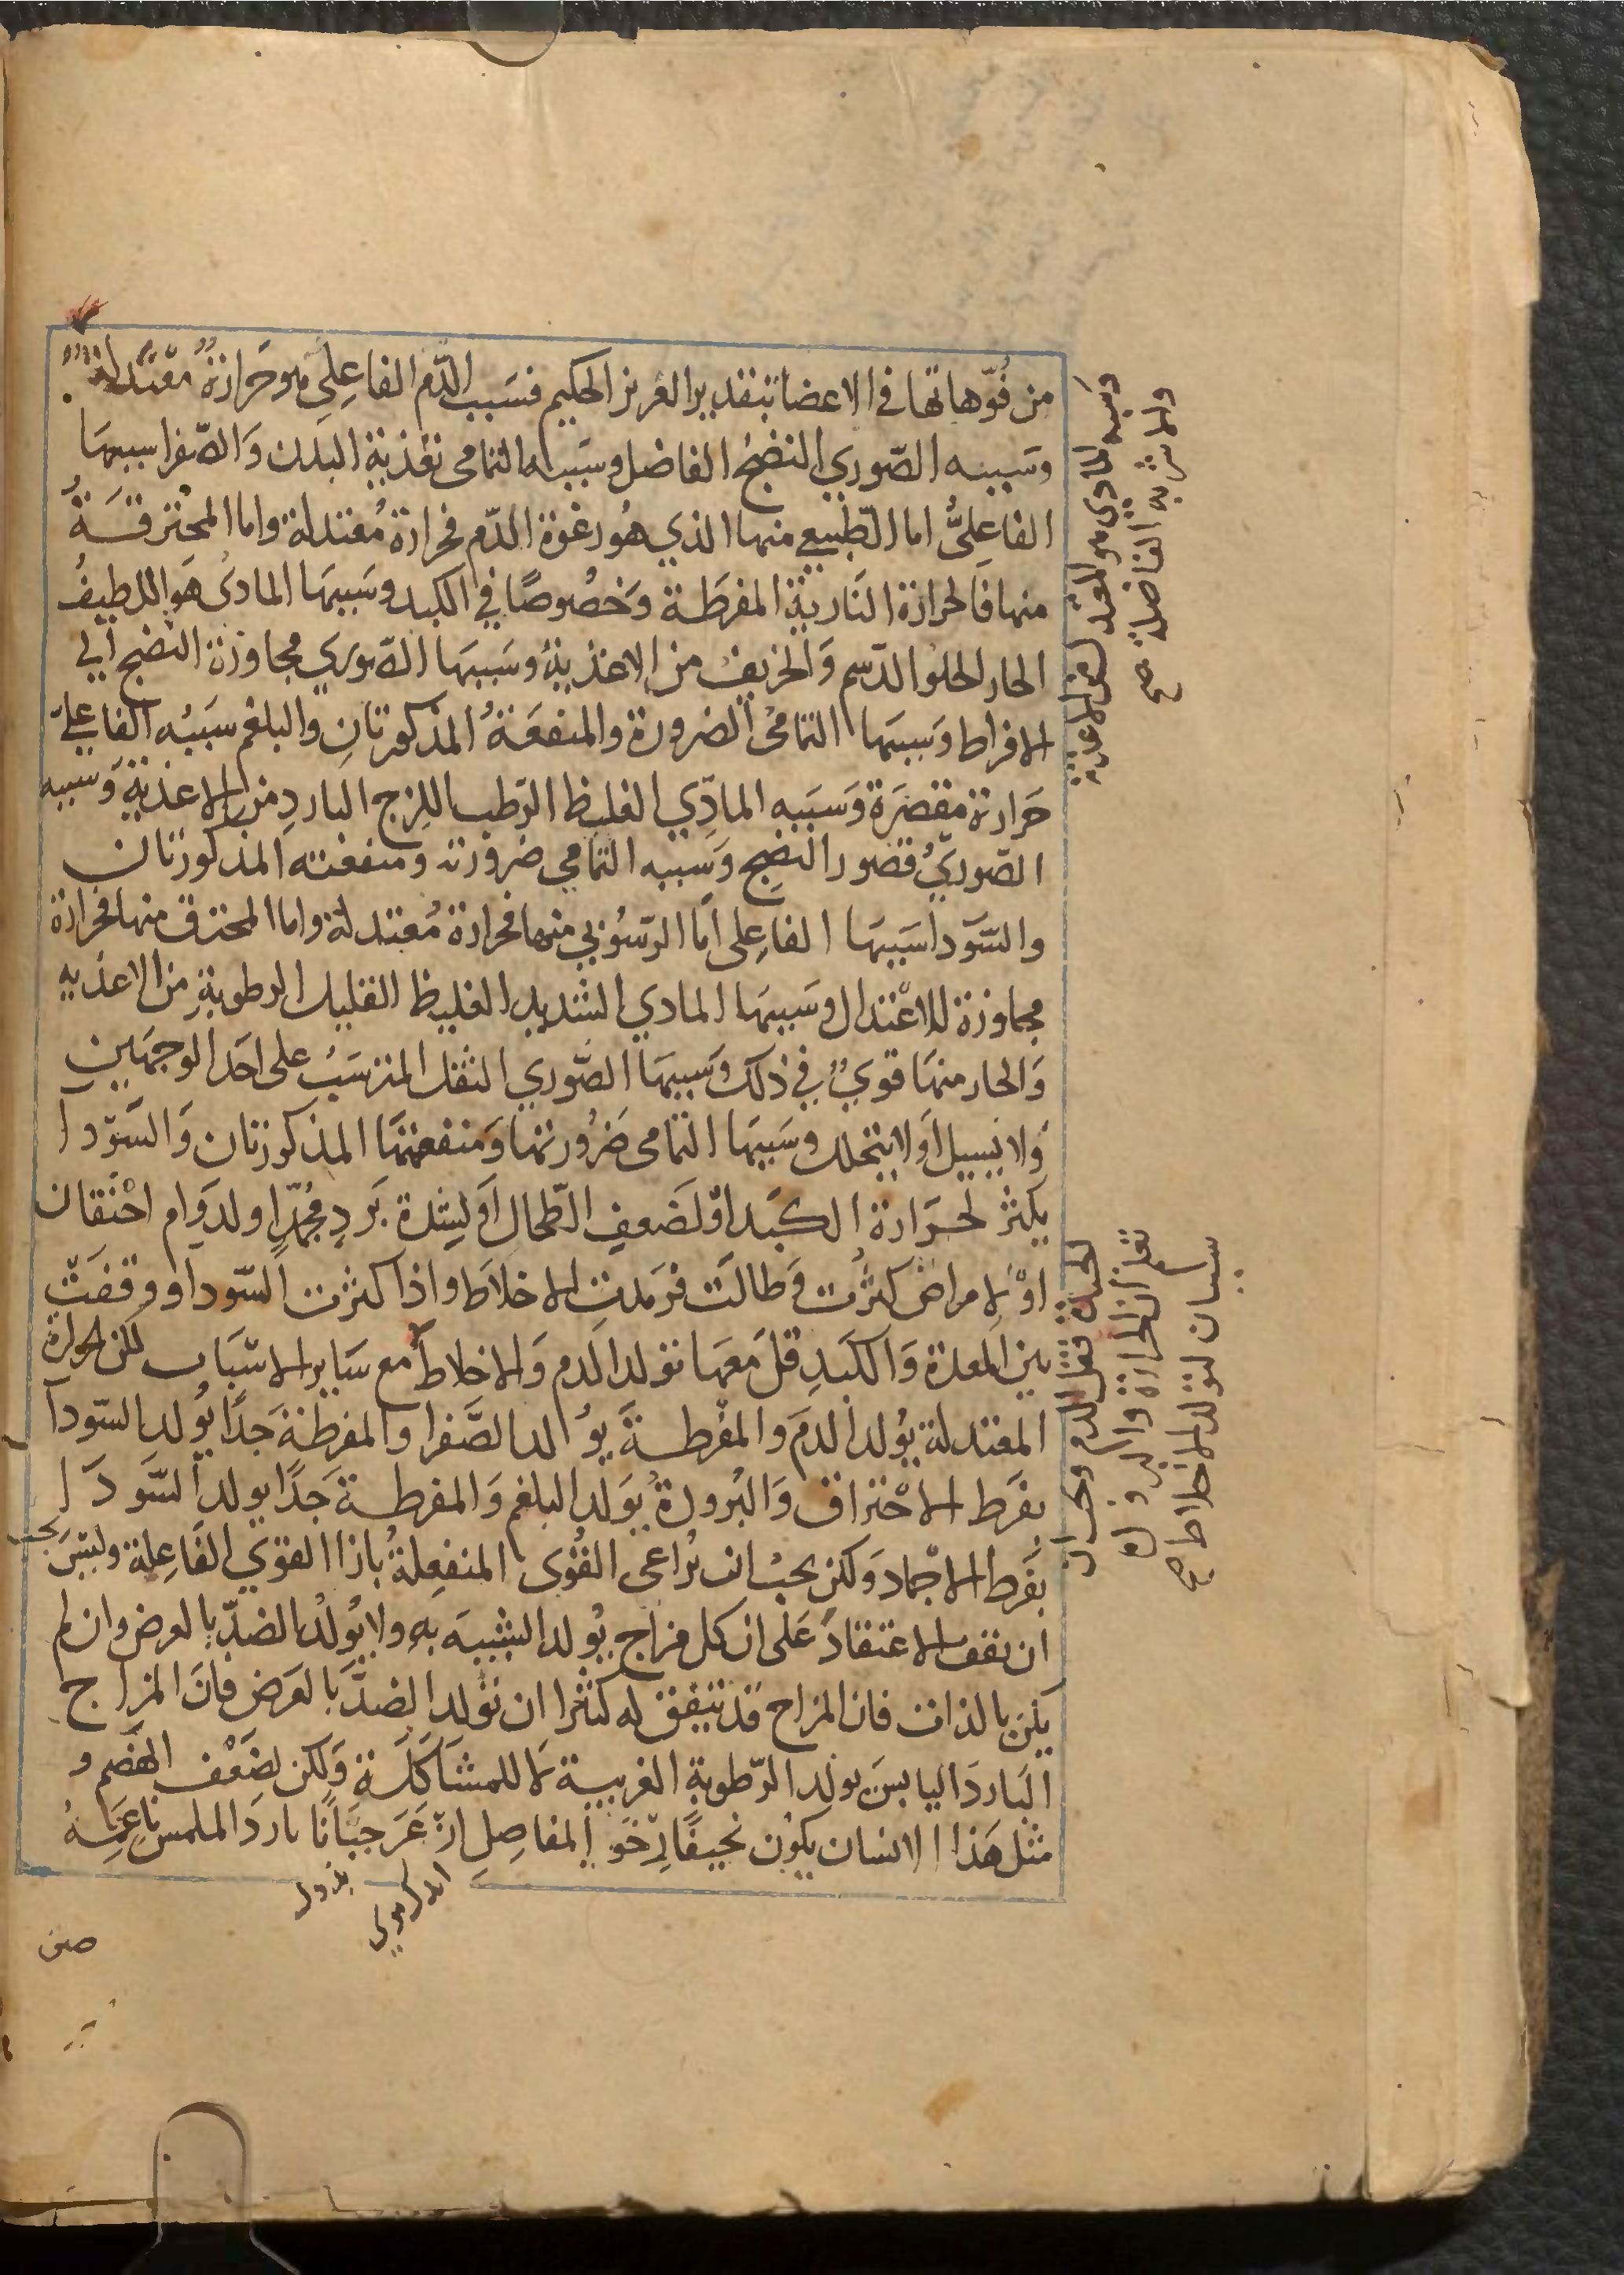 من فوهاتها في الاعضا بتقدير العزيز الحكيم فسبب الدم الفاعلي هو حرارة معتدلة
وسببه الصوري النضج الفاضل وسببه التمامي تغذية البدن والصفرا سببها
الفاعلي اما الطبيعي منها الذي هو رغوة الدم فحرارة معتدلة واما المحترقة
منها فالحرارة النارية المفرطة وخصوصا في الكبد وسببها المادي هو اللطيف
الحار الحلو الدسم والحريف من الاغذية وسببها الصوري مجاوزة النضج الي
الافراط وسببها التمامي الضرورة والمنفعة المذكورتان والبلغم سببه الفاعلي
حرارة مقصرة وسببه المادي الغليظ الرطب اللزج البارد من الاغذية وسببه
الصوري قصور النضج وسببه التمامي ضرورته ومنفعته المذكورتان
والسودا سببها الفاعلي اما الرسوبي منها فحرارة معتدلة واما المحترق منها فحرارة
مجاوزة للاعتدال وسببها المادي الشديد الغليظ القليل الرطوبة من الاغذيه
والحار منها قوي في ذلك وسببها الصوري الثفل المترسب على احد الوجهين
ولا يسيل او لا يتحلل وسببها التمامي ضرورتها ومنفعتها المذكورتان والسودا
يكثر لحرارة الكبد او لضعف الطحال او لشدة برد مجمد او لدوام احتقان
او لامراض كثرت وطالت فرمدت الاخلاط واذا كثرت السودا ووقفت
بين المعدة والكبد قل معها تولد الدم والاخلاط مع ساير الاسباب لكن الحرارة
المعتدلة يولد الدم والمفرطة يولد الصفرا والمفرطة جدا يولد السودا
بفرط الاحتراق والبرودة يولد البلغم والمفرطة جدا يولد السودا
بفرط الاجماد ولكن يجب ان تراعى القوى المنفعلة بازا القوي الفاعلة وليس يجب
ان يقف الاعتقاد على ان كل مزاج يولد الشبيه به ولا يولد الضد بالعرض وان لم
يكن بالذات فان المزاج قد يتفق له كثرا ان تولد الضد بالعرض فان المزاج
البارد اليابس يولد الرطوبة الغريبة لا للمشاكلة ولكن لضعف الهضم و
مثل هذا الانسان يكون نحيفا رخو المفاصل ازعر جبانا بارد الملمس ناعمه
وسببه المادي هو المعتدل من الاغذية
والاشربه الفاضلة صح
نقل ان الحرارة والبرودة
سببان لتولد الاخلاط صح